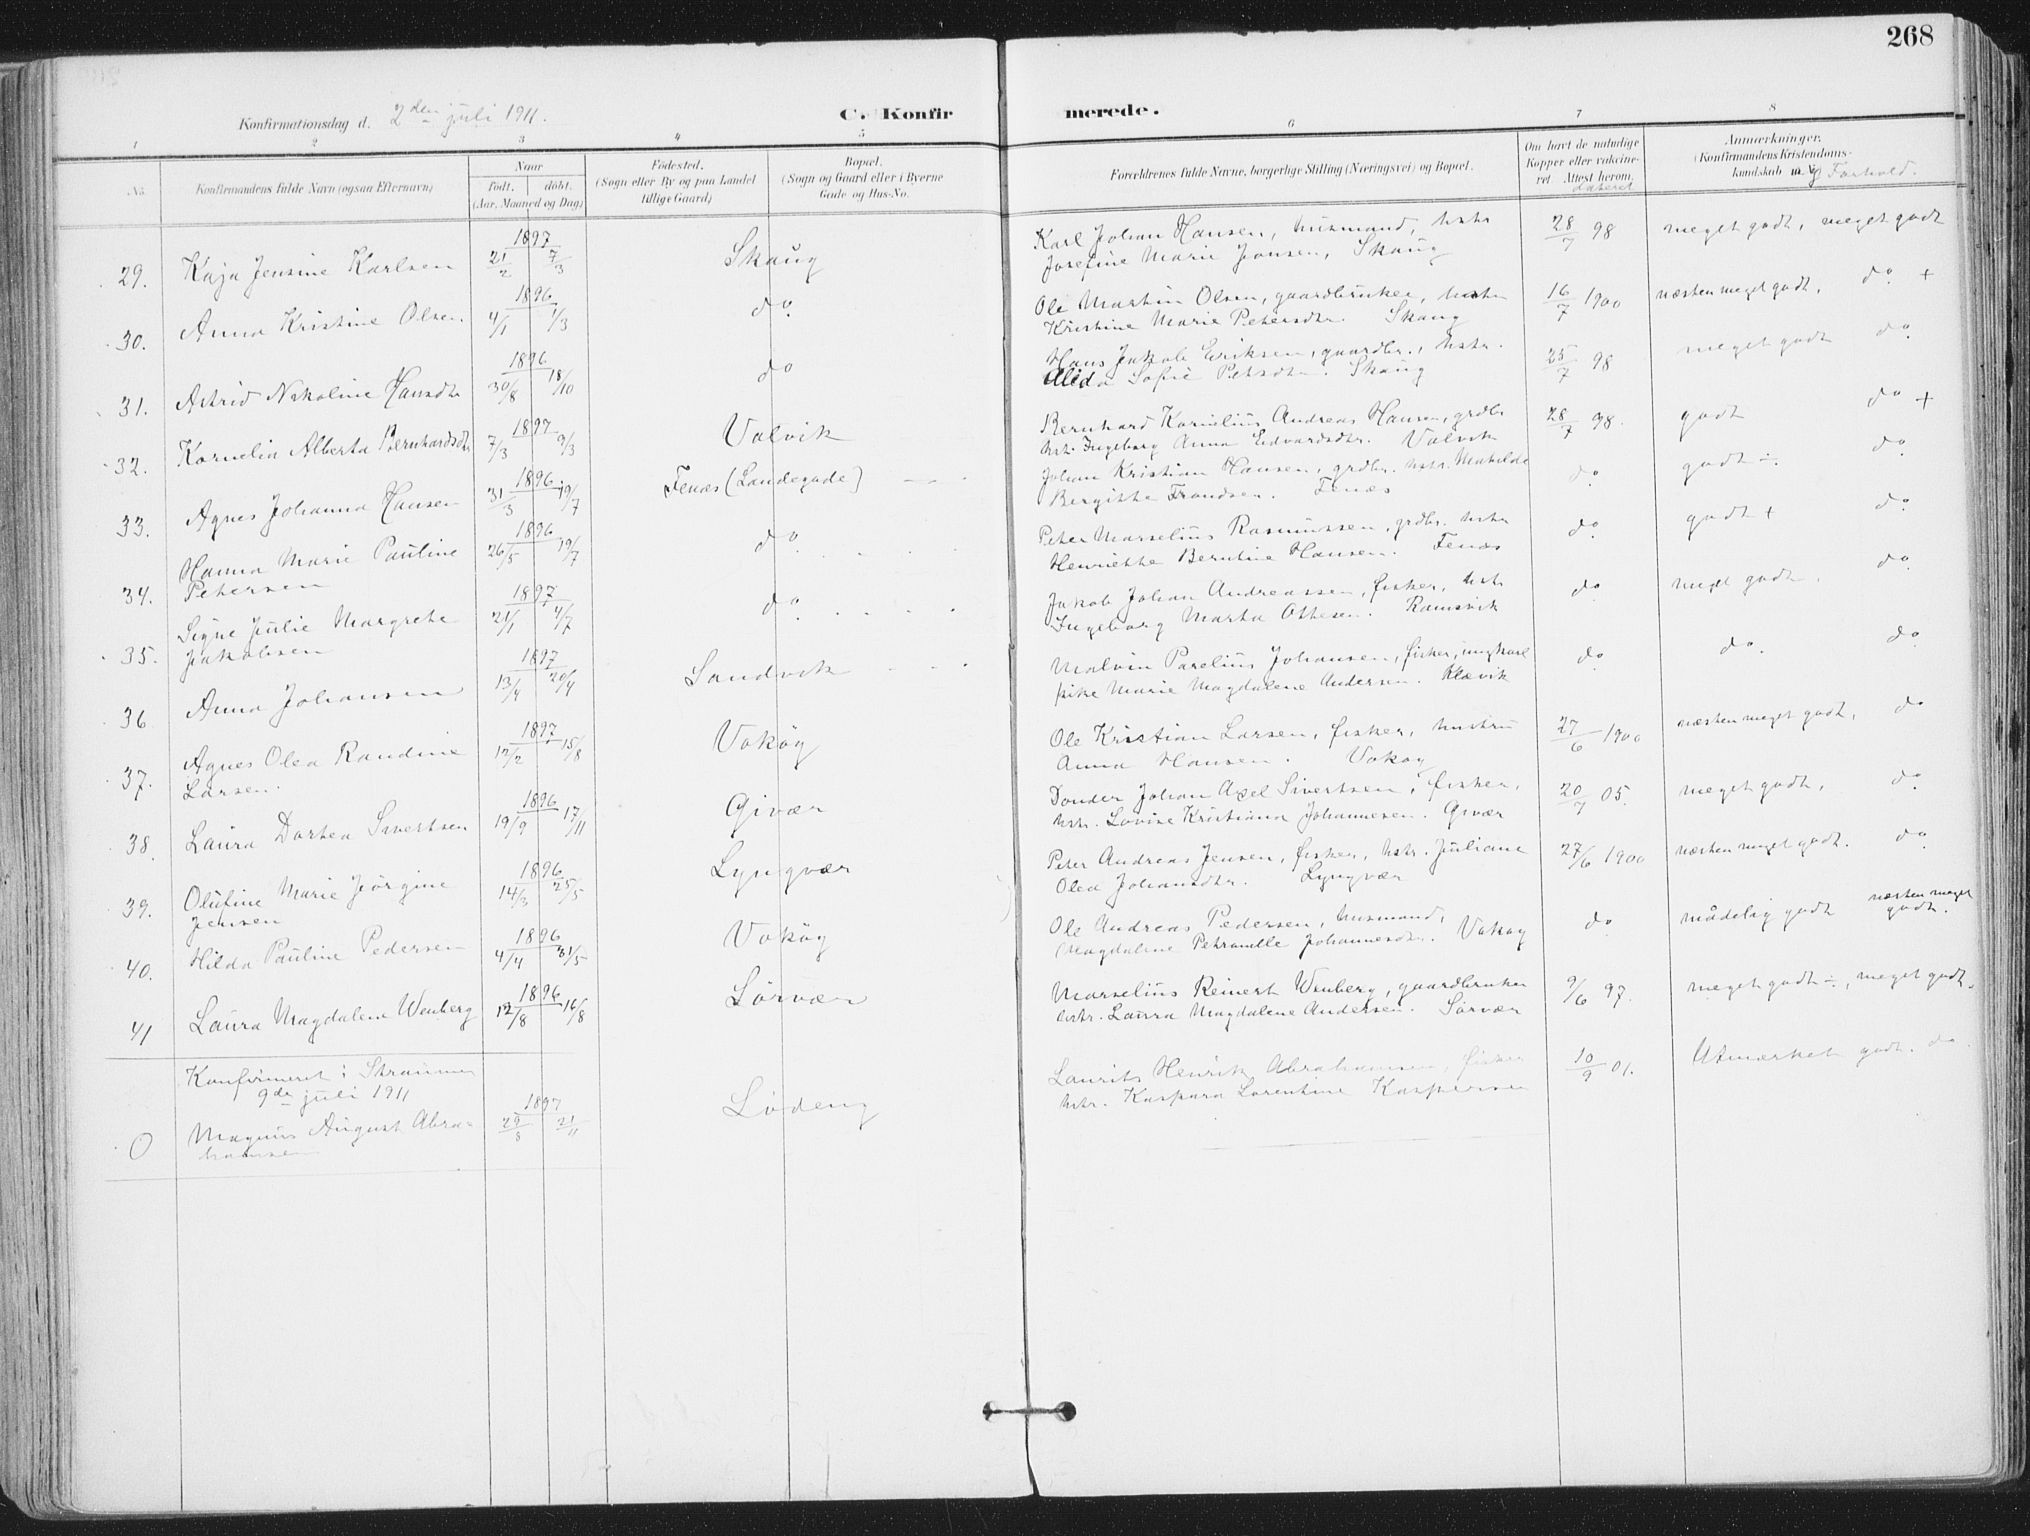 268
Konfirmationsdag d. 2den juli 1911.
C. Konfirmerede.
1 2 3 4 5 6 7 8
No.
Konfirmandens fulde Navn (ogsaa Efternavn)
Naar
født. døbt.
(Aar, Maaned og Dag)
Fødested.
(Sogn eller By og paa Landet
tillige Gaard)
Bopæl.
(Sogn og Gaard eller i Byerne
Gade og Hus-No.
Forældrenes fulde Navne, borgerlige Stilling (Næringsvei) og Bopæl.
Om havt de naturlige
Kopper eller vakcine-
ret. Attest herom,
dateret
Anmærkninger.
(Konfirmandens Kristendoms-
kundskab og Forhold.
29. Kaja Jensine Karlsen 1897 21/2 7/3 Skaug
Karl Johan Hansen, husmand, hstr
Josefine Marie Jonsen, Skaug
28/7 98 meget godt, meget godt
30. Anna Kristine Olsen 1896 4/1 1/3 do
Ole Martin Olsen, gaardbruker, hstr
Kristine Marie Petersdtr. Skaug
16/7 1900 næsten meget godt, do +
31. Astrid Nikoline Hansdtr 1896 30/8 18/10 do
Hans Jakob Eriksen, gaardbr., hstr.
Alida Sofie Petersdtr. Skaug
25/7 98 meget godt do
32. Kornelia Alberta Bernhardsdtr 1897 7/3 9/3 Valvik
Bernhard Kornelius Andreas Hansen, grdbr
hst. Ingeborg Anna Edvardsdtr. Valvik
28/7 98. godt do +
33. Agnes Johanna Hansen 1896 31/3 19/7 Fenæs (Landegode)
Johan Kristian Hansen, grdbr. hstr. Mathilde
Bergitte Frandsen. Fenæs
do godt ÷. do
34. Hanna Marie Pauline
Petersen 1896 26/5 19/7 do
Peter Marselius Rasmussen, grdbr. hstr
Henriette Berntine Hansen. Fenæs
do godt + do
35. Signe Julie Margrete
Jakobsen 1897 21/1 4/7 do
Jakob Johan Andreassen, fisker, hstr
Ingeborg Marta Ottesen. Ramsvik
do meget godt, do
36 Anna Johansen 1897 13/4 20/4 Sandvik
Malvin Parelius Johansen, fisker, ungkarl
pike Marie Magdalene Andersen. Klævik
do do. do
37. Agnes Olea Randine
Larsen. 1897 12/2 15/8 Vokøy
Ole Kristian Larsen, fisker, hustru
Anna Hansen. Vokøy
27/6 1900 næsten meget godt, do
38. Laura Dortea Sivertsen 1896 19/9 17/11 Givær
Tonder Johan Axel Sivertsen, fisker,
hstr. Lovise Kristiana Johannesen. Givær
20/7 05. meget godt, do
39. Olufine Marie Jörgine
Jensen 1896 14/3 25/5 Lyngvær
Peter Andreas Jensen, fisker, hstr. Juliane
Olea Johansdtr. Lyngvær
27/6 1900 næsten meget godt. do
40. Hilda Pauline Pedersen 1896 4/4 31/5 Vokøy
Ole Andreas Pedersen, husmand,
Magdalene Petranelle Johannesdtr. Vokøy
do mådelig godt næsten meget
godt.
41 Laura Magdalene Wenberg 1896 12/8 16/8 Sörvær
Marselius Reinert Wenberg, gaardbruker
hstr. Laura Magdalene Andersen. Sörvær
9/6 97. meget godt ÷, meget godt.
Konfirmeret i Straumen
9de juli 1911
0 Magnus August Abra-
hamsen 1897 29/8 21/11 Lödeng
Laurits Henrik Abrahamsen, fisker
hstr. Kaspara Lorentine Kaspersen
10/9 01. Utmerket godt. do.